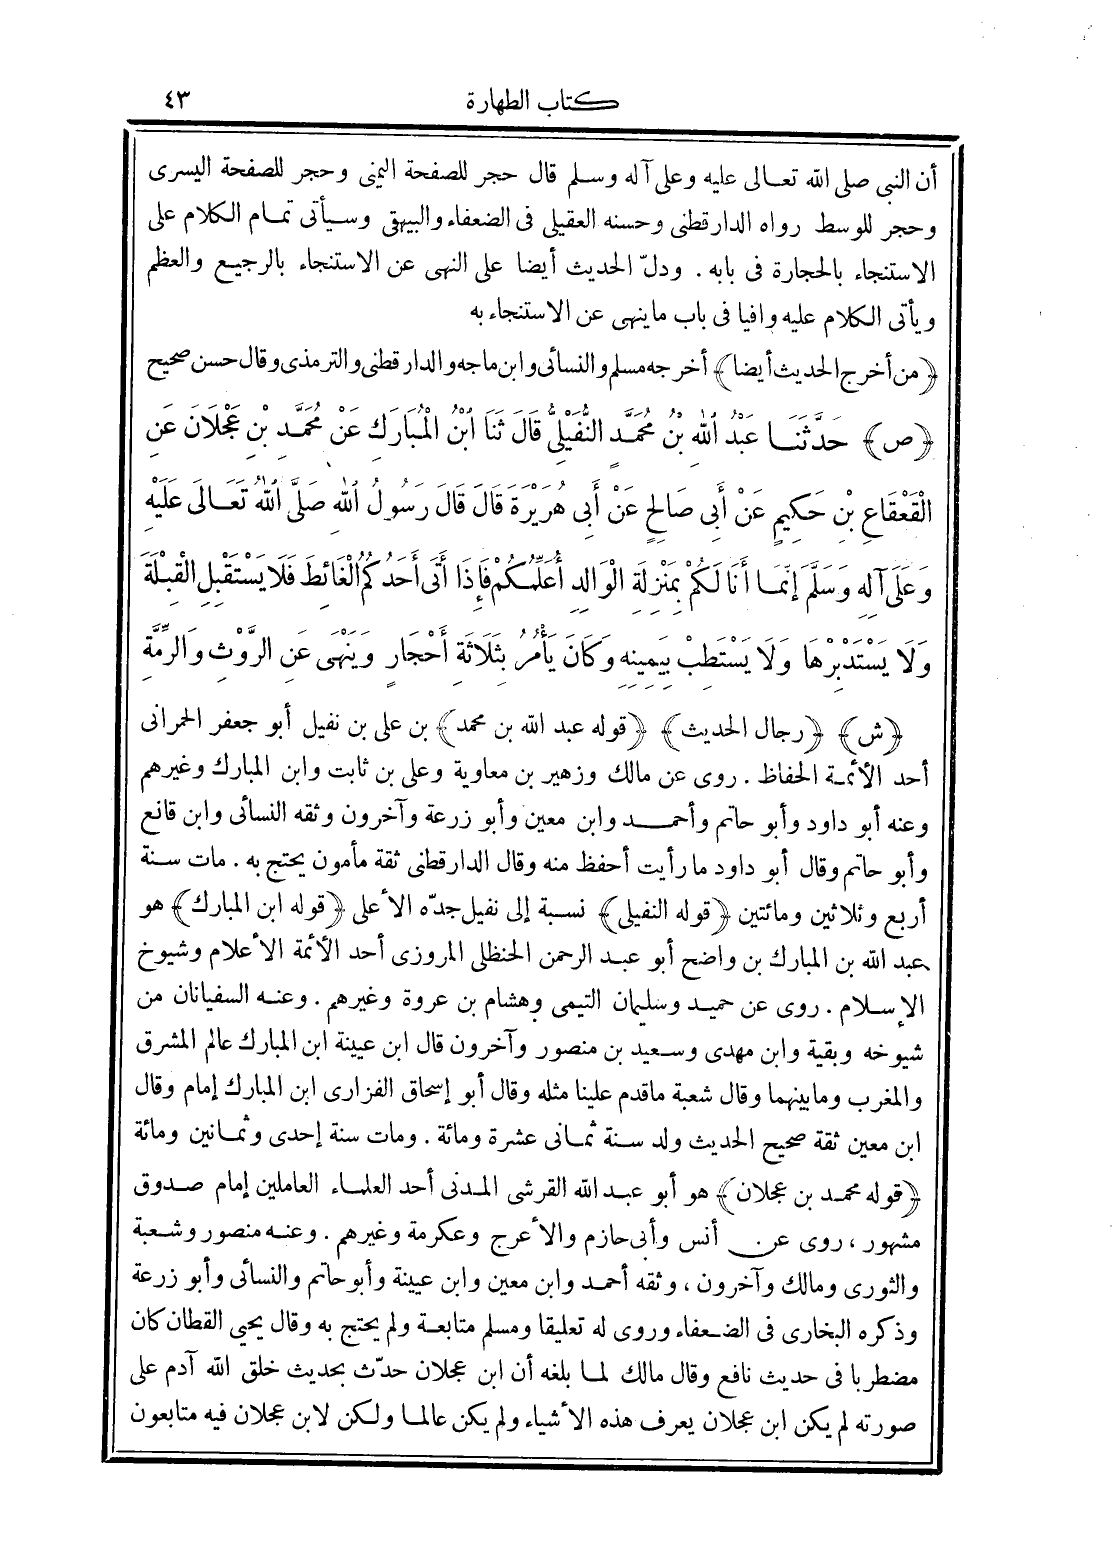 كتاب الطهارة ٤٣
أن النبى صلى الله تعالى عليه وعلى آله وسلم قال حجر للصفحة اليمنى وحجر للصفحة اليسرى
وحجر للوسط رواه الدارقطنى وحسنه العقيلى فى الضعفاء والبيهقى وسيأتى تمام الكلام على
الاستنجاء بالحجارة فى بابه . ودلّ الحديث أيضا على النهى عن الاستنجاء بالرجيع والعظم
ويأتى الكلام عليه وافيا فى باب ما ينهى عن الاستنجاء به
﴿من أخرج الحديث أيضا﴾ أخرجه مسلم والنسائى وابن ماجه والدارقطنى والترمذى وقال حسن صحيح
﴿ص﴾ حَدَّثَنَا عَبْدُ اللهِ بْنُ مُحَمَّدٍ النُّفَيْلِىُّ قَالَ ثَنَا ابْنُ الْمُبَارَكِ عَنْ مُحَمَّدِ بْنِ عَجْلَانَ عَنِ
الْقَعْقَاعِ بْنِ حَكِيمٍ عَنْ أَبِى صَالِحٍ عَنْ أَبِى هُرَيْرَةَ قَالَ قَالَ رَسُولُ اللهِ صَلَّى اللهُ تَعَالَى عَلَيْهِ
وَعَلَى آلِهِ وَسَلَّمَ إِنَّمَا أَنَا لَكُمْ بِمَنْزِلَةِ الْوَالِدِ أُعَلِّمُكُمْ فَإِذَا أَتَى أَحَدُكُمُ الْغَائِطَ فَلَا يَسْتَقْبِلِ الْقِبْلَةَ
وَلَا يَسْتَدْبِرْهَا وَلَا يَسْتَطِبْ بِيَمِينِهِ وَكَانَ يَأْمُرُ بِثَلَاثَةِ أَحْجَارٍ وَيَنْهَى عَنِ الرَّوْثِ وَالرِّمَّةِ
﴿ش﴾ ﴿رجال الحديث﴾ ﴿قوله عبد الله بن محمد﴾ بن على بن نفيل أبو جعفر الحرانى
أحد الأئمة الحفاظ . روى عن مالك وزهير بن معاوية وعلى بن ثابت وابن المبارك وغيرهم
وعنه أبو داود وأبو حاتم وأحمد وابن معين وأبو زرعة وآخرون وثقه النسائى وابن قانع
وأبو حاتم وقال أبو داود ما رأيت أحفظ منه وقال الدارقطنى ثقة مأمون يحتج به . مات سنة
أربع وثلاثين ومائتين ﴿قوله النفيلى﴾ نسبة إلى نفيل جدّه الأعلى ﴿قوله ابن المبارك﴾ هو
عبد الله بن المبارك بن واضح أبو عبد الرحمن الحنظلى المروزى أحد الأئمة الأعلام وشيوخ
الإسلام . روى عن حميد وسليمان التيمى وهشام بن عروة وغيرهم . وعنه السفيانان من
شيوخه وبقية وابن مهدى وسعيد بن منصور وآخرون قال ابن عيينة ابن المبارك عالم المشرق
والمغرب وما بينهما وقال شعبة ماقدم علينا مثله وقال أبو إسحاق الفزارى ابن المبارك إمام وقال
ابن معين ثقة صحيح الحديث ولد سنة ثمانى عشرة ومائة . ومات سنة إحدى وثمانين ومائة
﴿قوله محمد بن عجلان﴾ هو أبو عبد الله القرشى المدنى أحد العلماء العاملين إمام صدوق
مشهور ، روى عن أنس وأبى حازم والأعرج وعكرمة وغيرهم . وعنه منصور وشعبة
والثورى ومالك وآخرون ، وثقه أحمد وابن معين وابن عيينة وأبو حاتم والنسائى وأبو زرعة
وذكره البخارى فى الضعفاء وروى له تعليقا ومسلم متابعة ولم يحتج به وقال يحيى القطان كان
مضطربا فى حديث نافع وقال مالك لما بلغه أن ابن عجلان حدّث بحديث خلق الله آدم على
صورته لم يكن ابن عجلان يعرف هذه الأشياء ولم يكن عالما ولكن لابن عجلان فيه متابعون